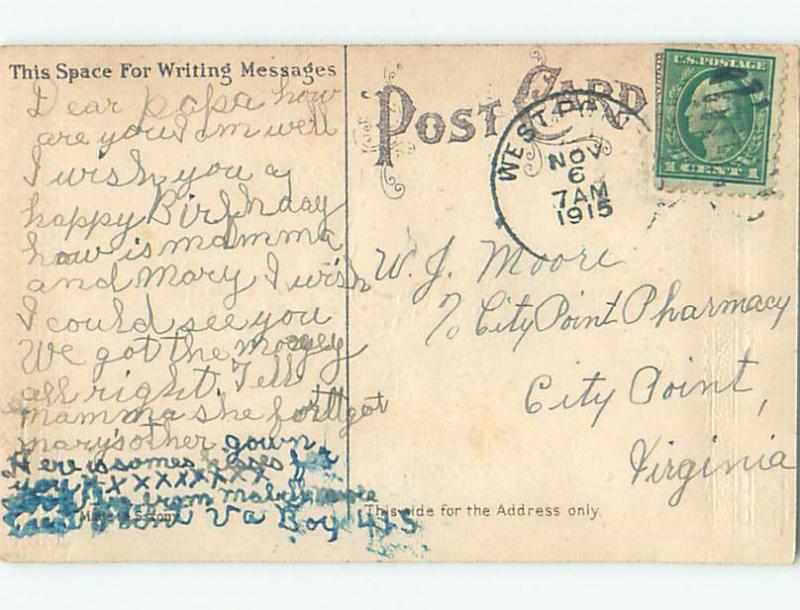 This Space For Writing Messages
Dear papa how
are you I am well
I wish you a
happy Birthday
how is mamma
and Mary I wish
I could see you
We got the money
all right. Tell
mamma she forttgot
mary's other gown
Here is somes kisses for
you x x x x x x x x x
from
Va Box 415
POST CARD
WEST POINT
NOV
6
7 AM
1915
U.S. POSTAGE
1 CENT 1
W. J. Moore
% City Point Pharmacy
City Point,
Virginia
This side for the Address only.